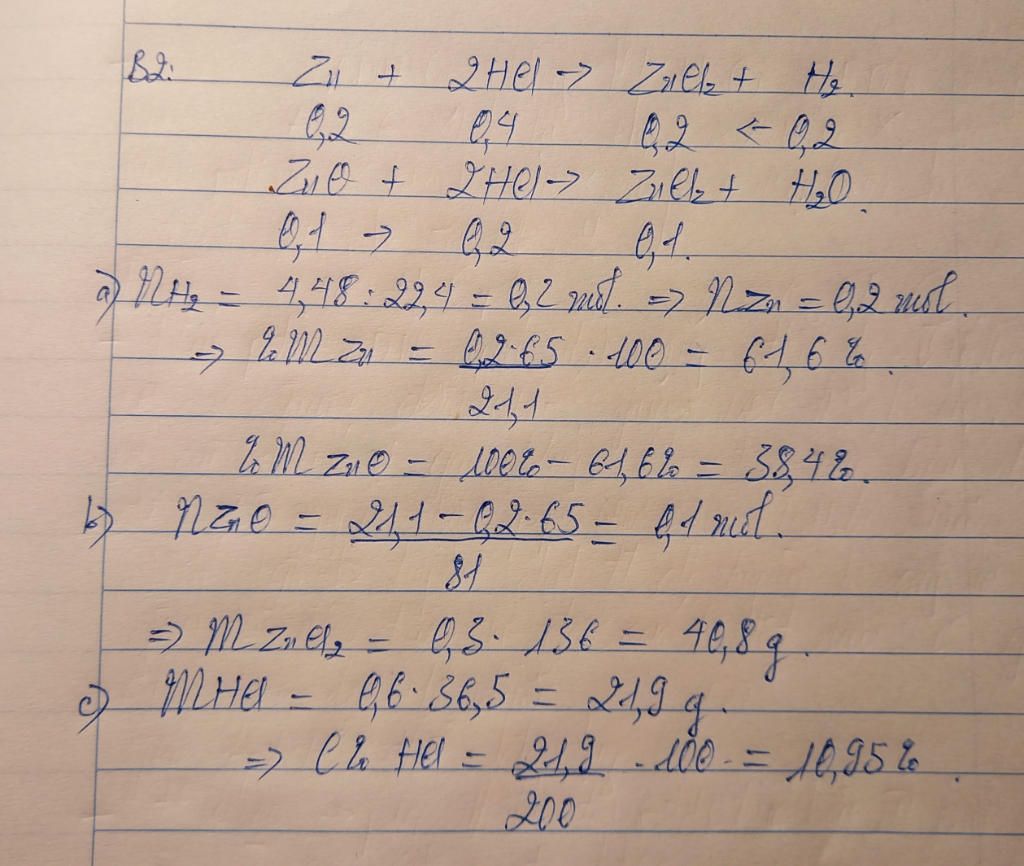 B2: Zn + 2HCl → ZnCl₂ + H₂.
0,2 0,4 0,2 ← 0,2
ZnO + 2HCl → ZnCl₂ + H₂O.
0,1 → 0,2 0,1.
a) nH₂ = 4,48 : 22,4 = 0,2 mol. ⇒ nZn = 0,2 mol.
⇒ %mZn = 0,2·65 / 21,1 · 100 = 61,6%.
%mZnO = 100% - 61,6% = 38,4%.
b) nZnO = 21,1 - 0,2·65 / 81 = 0,1 mol.
⇒ mZnCl₂ = 0,3 · 136 = 40,8 g.
c) mHCl = 0,6 · 36,5 = 21,9 g.
⇒ C% HCl = 21,9 / 200 · 100 = 10,95%.